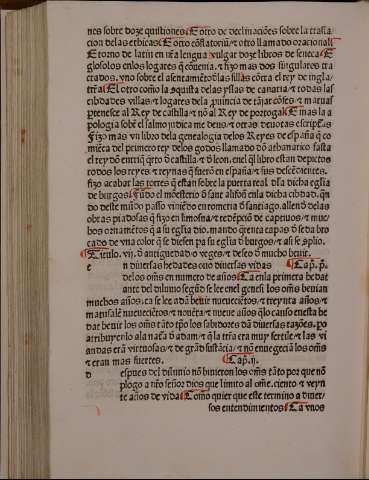 nes sobre doze quistiones. E otro de declinaciões sobre la trasla
cion delas ethicas. E otro cõflatoriũ. ⁊ otro llamado oracional.
E torno de latin en nr̃a lengua vulgar doze libros de seneca. E
glosolos enlos logares q̃ cõuenia. ⁊ fizo mas dos singulares tra
ctados. vno sobre el asentamiẽto dlas sillas cõtra el rey de ingla/
trr̃a. El otro como la cõquista delas yslas de canaria. ⁊ todas las
cibdades villas ⁊ logares dela puincia de tãjar cõ fes
pertenesce al Rey de castilla ⁊ nõ al Rey de portogal. E mas la a
pologia sobrel salmo judica me deus ⁊ otras deuotas escripturas.
Fizo mas vn libro dela genealogia delos Reyes de españa q̃ co
miẽça del primero rey delos godos llamado dõ athanarico fasta
el rey dõ enrriq̃ qrto d̃ castilla ⁊ d̃ leon. enel q̃l libro estan depictos
todos los reyes ⁊ reynas q̃ fuerõ en españa ⁊ sus descẽdientes.
fizo acabar las torres q̃ estan sobre la puerta real. d̃la dicha eglia
de burgos. Fũdo el mõesterio d̃ sant alifõso enla dicha cibdad. qn
do deste mũdo passo viniẽdo en romeria d̃ santiago. alleñd delas
obras piadosas q̃ fizo en limosna ⁊ redẽpciõ de captiuos. ⁊ muc/
hos ornamẽtos q̃ a su eglia dio. mando qrenta capas d̃ seda bro
cado de vna color q̃ se diesen pa su eglia d̃ burgos. ⁊ asi se cplio.
Titulo. vij. d̃ antiguedad o vegez. ⁊ deseo d̃ mucho beuir.
e n diuersas hedades ouo diuersas vidas Cap. p̃.
delos oms̃ en numero de años. Ca enla primera hedad
ante del diluuio segũd se lee enel genesi los oms̃ beuian
muchos años. ca se lee adã beuir nueueciẽtos. ⁊ treynta años. ⁊
matusalẽ nueueciẽtos ⁊ nouẽta ⁊ nueue años. q̃lo causo en esta he
dat beuir los oms̃ tãto tpo los sabidores dã diuersas razões. po
atribuyenlo ala natã d̃ adam. ⁊ q̃ la trr̃a era muy fertile. ⁊ las vi
andas erã virtuosas. ⁊ de grãd sustãcia. ⁊ nõ enuegeciã los oms̃
⁊ eran mas fuertes. Cap. ij.
d espues del diluuio nõ biuieron los oms̃ tãto por que nõ
plogo a nr̃o señor dios que limito al ome. ciento ⁊ veyn
te años de vida. Como quier que este termino a diuer/
sos entendimientos. Ca vnos